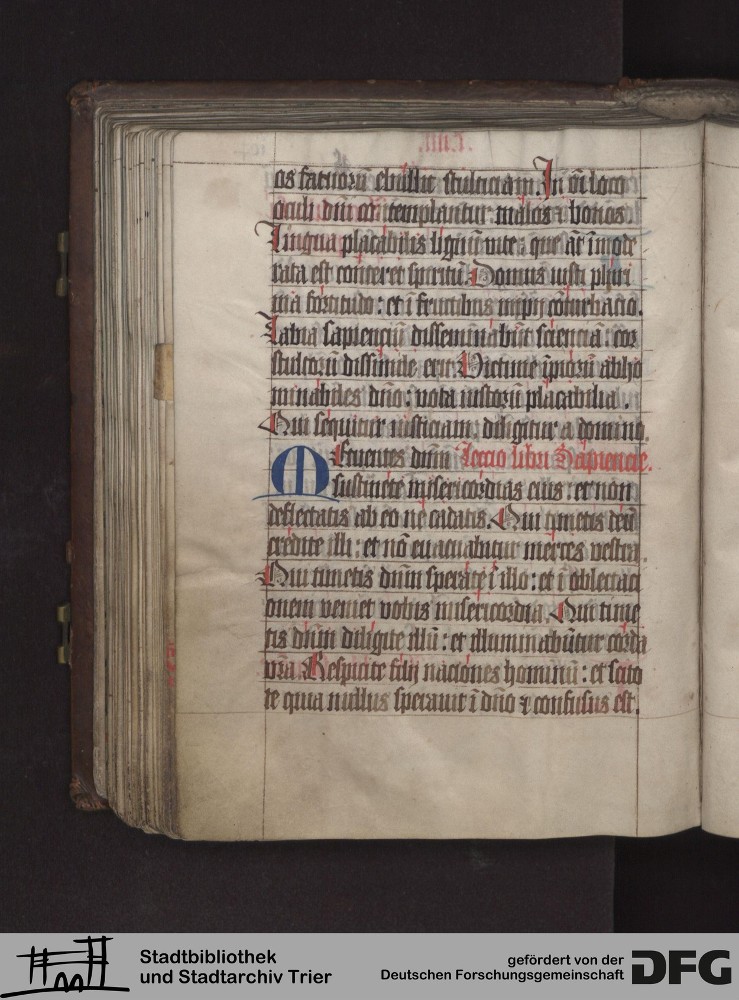 .xiiii.
os fatuorū ebullit stulticiam. In oī loco
oculi dn̄i cōtemplantur malos ⁊ bonos.
Lingua placabilis lignū vite: que āt īmode
rata est conteret spiritū. Domus iusti pluri
ma fortitudo: et ī fructibus impij cōturbacio.
Labia sapienciū disseminabūt scienciā: cor
stultorū dissimile erit. Victime īpiorū abho
minabiles dn̄o: vota iustorū placabilia.
Qui sequitur iusticiam: diligitur a domino.
Metuentes dn̄m Lectio libri Sapiencie.
sustinete misericordias eius: et non
deflectatis ab eo ne cadatis. Qui timetis deū
credite illi: et nō euacuabitur merces vestra.
Qui timetis dn̄m sperate ī illo: et ī oblectaci
onem veniet vobis misericordia. Qui time
tis dn̄m diligite illū: et illuminabūtur corda
vr̄a. Respicite filij naciones hominū: et scito
te quia nullus sperauit ī dn̄o ⁊ confusus est.
Stadtbibliothek
und Stadtarchiv Trier
gefördert von der
Deutschen Forschungsgemeinschaft
DFG